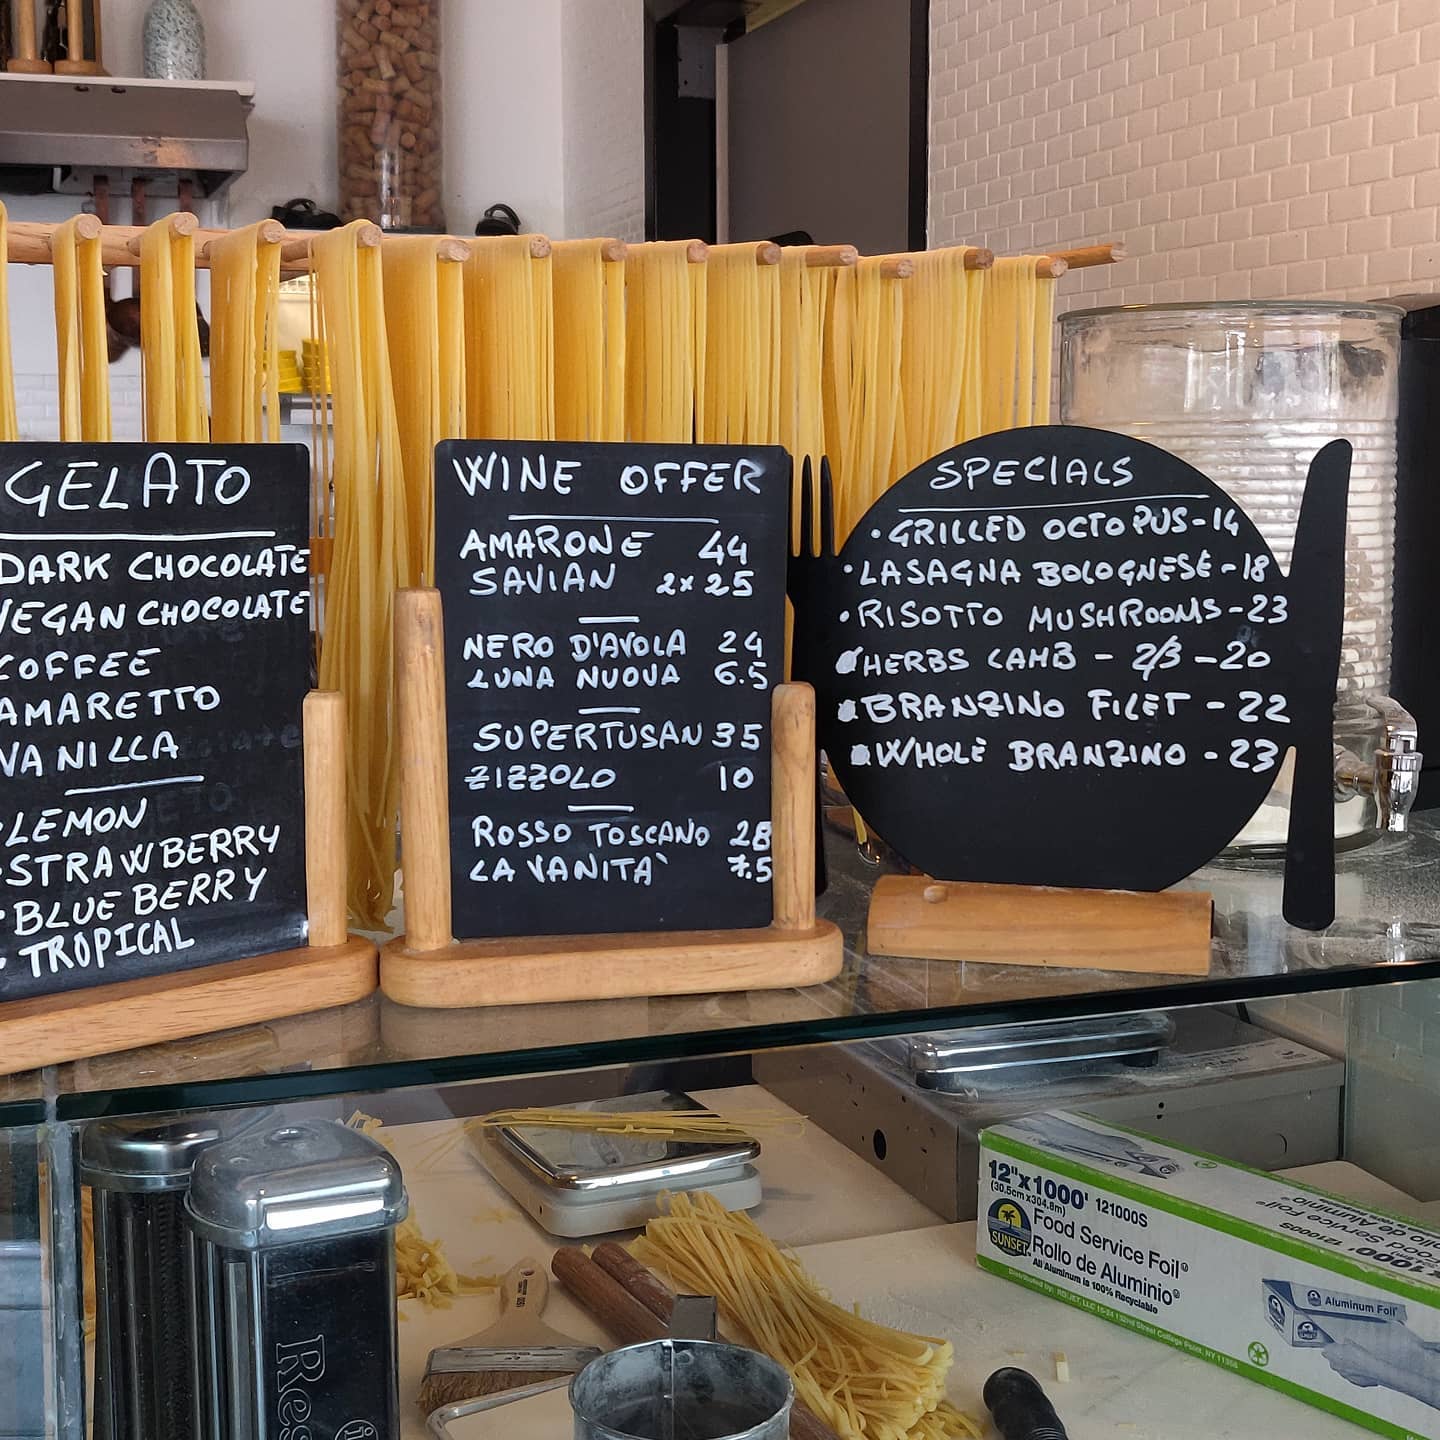 GELATO
DARK CHOCOLATE
VEGAN CHOCOLATE
COFFEE
AMARETTO
VANILLA
LEMON
• STRAWBERRY
• BLUE BERRY
• TROPICAL
WINE OFFER
AMARONE 44
SAVIAN 2x25
NERO D'AVOLA 24
LUNA NUOVA 6.5
SUPERTUSAN 35
ZIZZOLO 10
ROSSO TOSCANO 28
LA VANITA` 7.5
SPECIALS
• GRILLED OCTOPUS - 14
• LASAGNA BOLOGNESE - 18
• RISOTTO MUSHROOMS - 23
• HERBS LAMB - 2/3 - 20
• BRANZINO FILET - 22
• WHOLE BRANZINO - 23
12"x1000' 121000S
(30.5cm x304.8m)
SUNSET
Food Service Foil
Rollo de Aluminio
All Aluminum is 100% Recyclable
Aluminum Foil